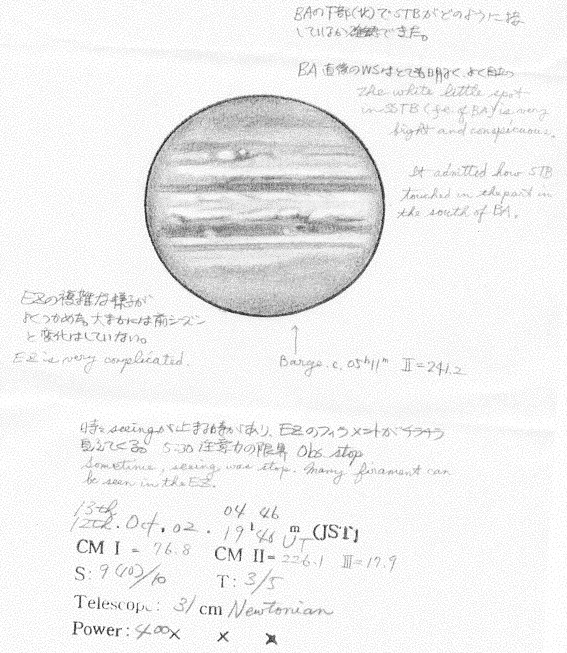 BAの下部(北)でSTBがどのように接
しているか確認できた。
BA直後のWSはとても明るく、よく目立つ
The white little spot
in SSTB (f.e. of BA) is very
bight and conspicuous.
It admitted how STB
touched in the part in
the south of BA.
EZの複雑な様子が
よくつかめた。大まかには前シーズン
と変化はしていない。
EZ is very complicated.
Barge. c. 05h11m II=241.2
時々seeingが止まる時があり、EZのフィラメントがチラチラ
見えてくる。 5:30 注意力の限界 Obs stop
Sometimie, seeing was stop. Many firament can
be seen in the EZ.
13th 04 46
12th. Oct. 02. 19h 46m (JST)
UT
CM I = 76.8 CM II= 226.1 III=17.9
S: 9(10)/10 T: 3/5
Telescope: 31 cm Newtonian
Power: 400× × ×